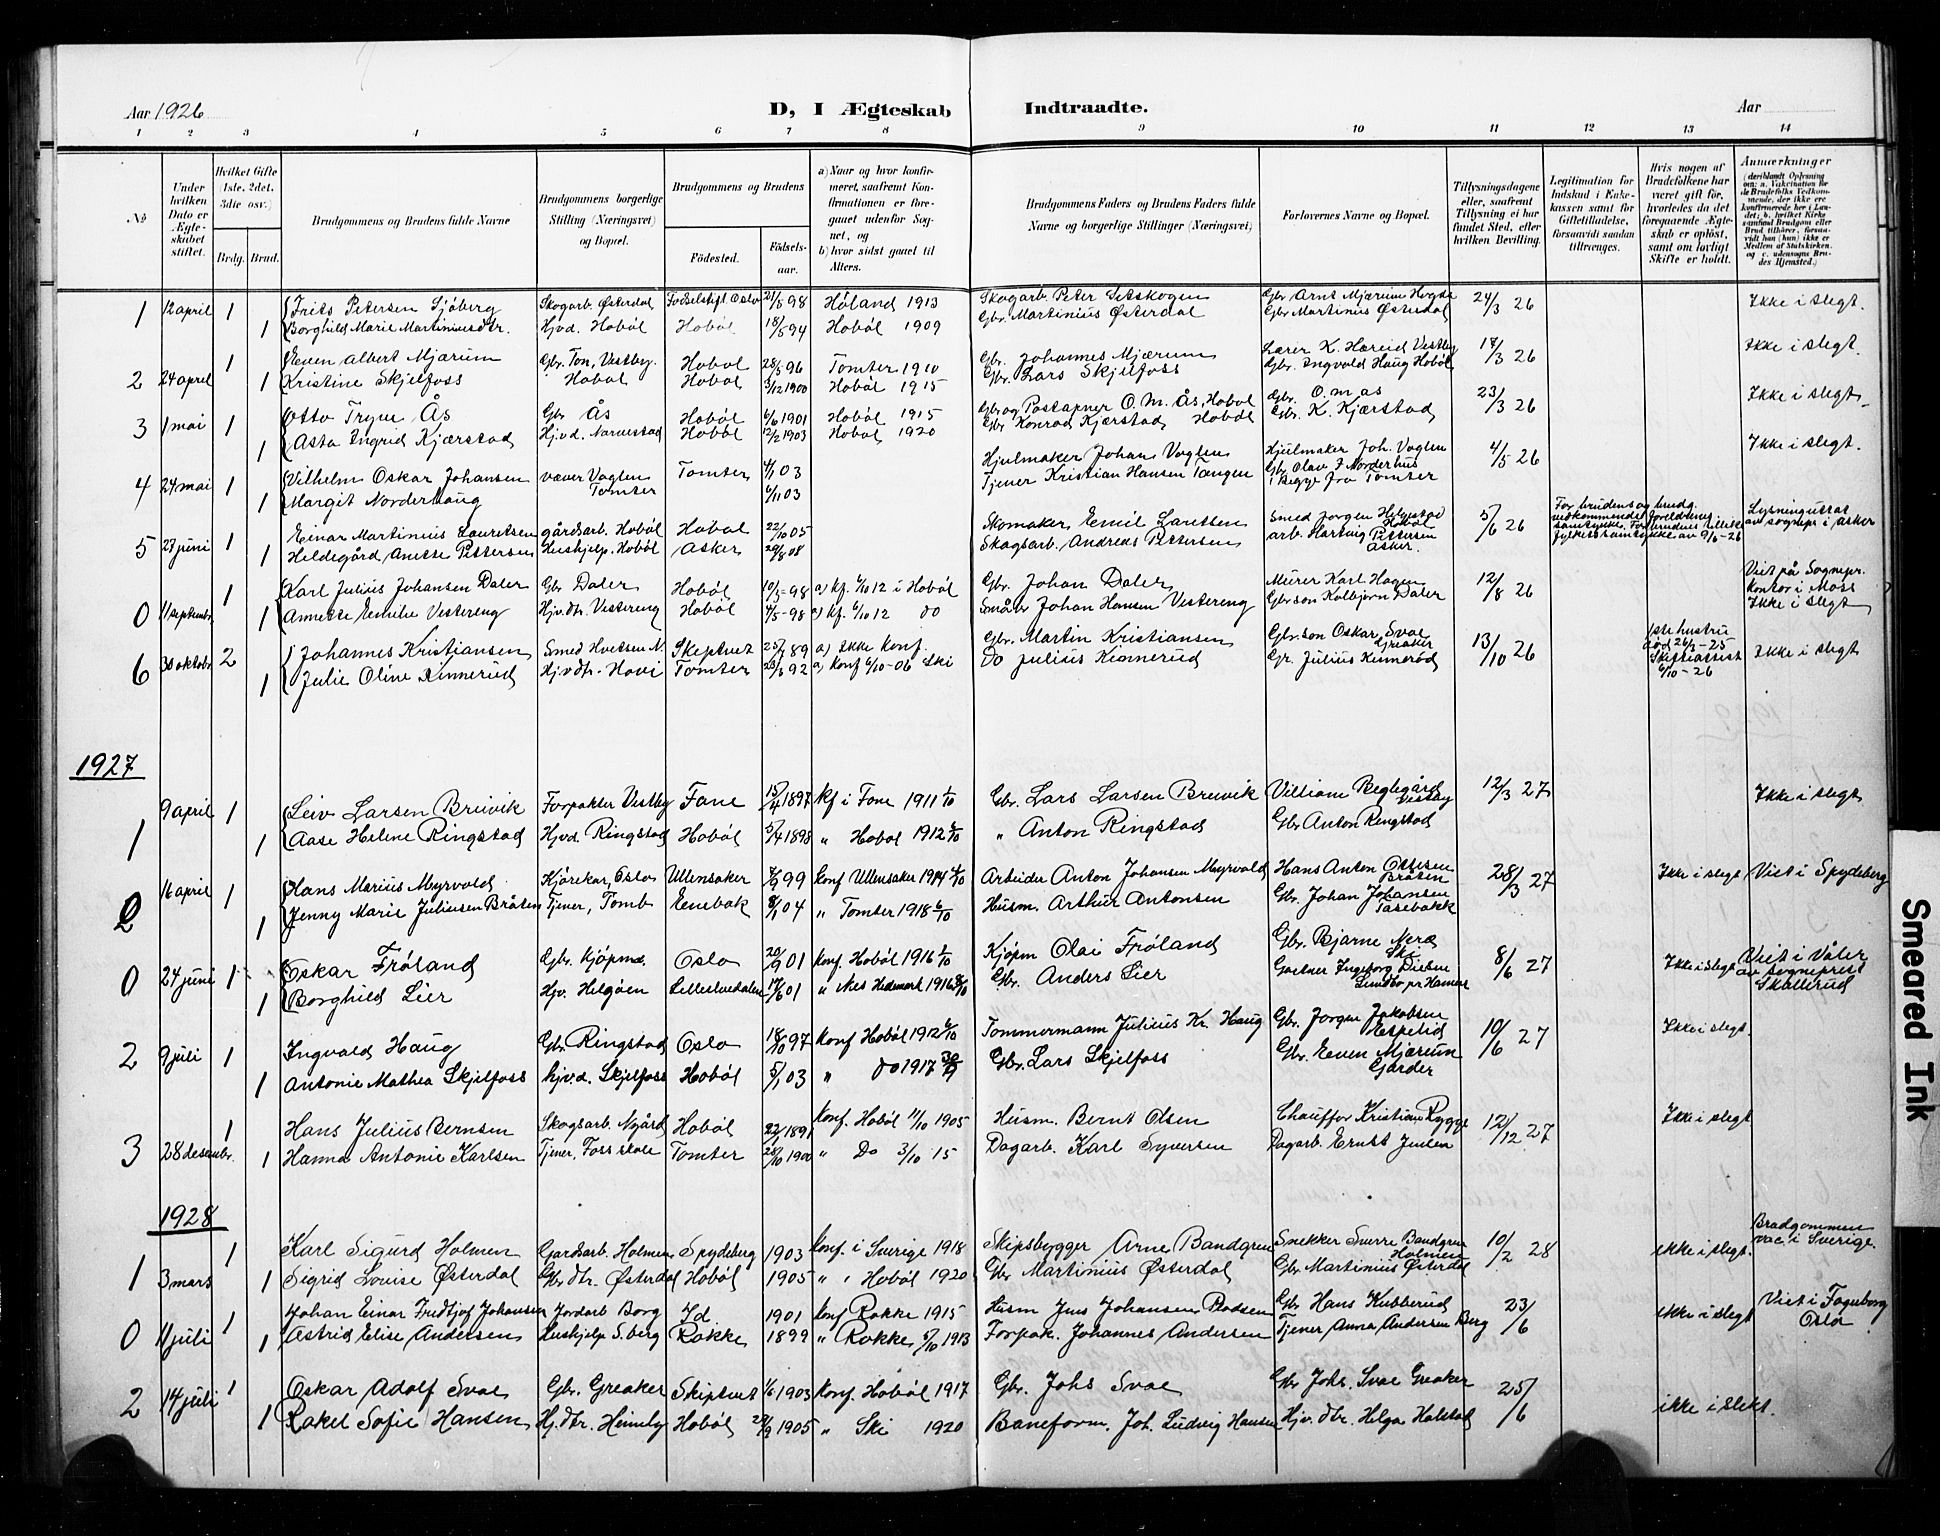 Aar 1926
D, I Ægteskab Indtraadte.
Aar
1 2 3 4 5 6 7 8 9 10 11 12 13 14
No
Under hvilken Dato er Ægteskabet stiftet.
Hvilket Gifte (1ste, 2det, 3die osv.)
Brdg. Brud.
Brudgommens og Brudens fulde Navne
Brudgommens borgerlige Stilling (Næringsvei) og Bopæl.
Brudgommens og Brudens
Fødested. Fødselsaar.
a) Naar og hvor konfirmeret, saafremt Konfirmationen er foregaaet udenfor Sognet, og b) hvor sidst gaaet til Alters.
Brudgommens Faders og Brudens Faders fulde Navne og borgerlige Stillinger (Næringsvei)
Forlovernes Navne og Bopæl.
Tillysningsdagene eller, saafremt Tillysning ei har fundet Sted, efter hvilken Bevilling.
Legitimation for Indskud i Enkekassen samt for Giftetilladelse, forsaavidt saadan tiltrænges.
Hvis nogen af Brudefolkene har været gift før, hvorledes da det foregaaende Ægteskab er opløst, samt om lovligt Skifte er holdt.
Anmærkninger (deriblandt Oplysning om: a. Vakcination for de Brudefolks Vedkommende, der ikke ere konfirmerede her i Landet; b. hvilket Kirkesamfund Brudgom eller Brud tilhører, forsaavidt han (hun) ikke er Medlem af Statskirken, og c. udensogns Brudes Hjemsted.)
1 12 april 1 Frits Petersen Sjøberg Skogarb. Østerdal Fødselstift Oslo 21/5 98 Høland 1913 Skogarb. Peter Setskogen Gbr. Arnt Mjærum 24/3 26 Ikke i slegt.
1 Borghild Marie Martiniusdtr. Hjvd. Hobøl Hobøl 18/5 94 Hobøl 1909 Gbr. Martinius Østerdal Gbr Martinus Østerdal
2 24 april 1 Even Albert Mjærum Gbr. Ton, Vestby. Hobøl 28/5 96 Tomter 1910 Gbr. Johannes Mjærum Lærer K. Hareid Vestby 17/3 26 Ikke i slegt.
1 Kristine Skjelfoss Hobøl Hobøl 3/12 1900 Hobøl 1915 Gbr. Lars Skjelfoss Gbr. Ingvald Haug Hobøl
3 1 mai 1 Otto Trygve Ås Gbr Ås Hobøl 6/6 1901 Hobøl 1915 Gbr og Postapner O. M. Ås, Hobøl Gbr. O. M. Ås 23/3 26 Ikke i slegt.
1 Asta Ingrid Kjærstad Hjvd. Narvestad Hobøl 12/2 1903 Hobøl 1920 Gbr Konrad Kjærstad Hobøl Gbr. K. Kjærstad
4 24 mai 1 Vilhelm Oskar Johansen væver Vaglen Tomter 4/1 03 Hjulmaker Johan Vaglen Hjulmaker Joh. Vaglen 4/5 26 Ikke i slegt.
1 Margit Norderhaug Tomter 6/11 03 Tjener Kristian Hansen Tangen Gbr Olav J Norderhus
begge fra Tomter
5 27 juni 1 Einar Martinius Lauretsen gårdsarb. Hobøl Hobøl 22/10 05 Skomaker Emil Laretsen Smed Jørgen Helgestad Hobøl 5/6 26 Lysningsattst av sognepr i Asker
1 Hildegård Anette Pettersen Hushjelp. Hobøl Asker 29/8 08 Skogsarb. Andreas Pettersen arb. Hartvig Pettersen Asker. fylkets samtykke av 9/6-26
0 11 septembr 1 Karl Julius Johansen Daler Gbr Daler Hobøl 10/3-98 a) kf. 6/10 12 i Hobøl Gbr. Johan Daler Murer Karl Hagen 12/8 26 Viet på Sognepr. kontor i Moss
1 Annette Emilie Vestereng Hjv.dtr. Vestereng Hobøl 4/5-98 a) kf. 6/10 12 do Småbr Johan Hansen Vestereng Gbr søn Kolbjørn Daler Ikke i slegt
6 30 oktobr 2 Johannes Kristiansen Smed Hvitsen N. Skeptvet 25/7 89 a) Ikke Konf. Gbr. Martin Kristiansen Gbr. søn Oskar Svae Greaker 13/10 26 1ste hustru død 26/3-25 Skifteattest 6/10-26 Ikke i slegt
1 Julie Oline Kinnerud Hjvdtr. Hovi Tomter 23/5 92 a) Konf 6/10-06 Ski Do Julius Kinnerud Gr. Julius Kinnerød
1927
1 9 april 1 Leiv Larsen Breivik Forpakter Vestby Fane 15/4 1897 kf i Fane 1911 1/10 Gbr. Lars Larsen Breivik Villiam Reglegård Vestby 12/3 27 Ikke i slegt
1 Aase Helene Ringstad Hjvd. Ringstad Hobøl 5/4 1898 " Hobøl 1912 6/10 " Anton Ringstad Gbr Anton Ringstad
2 16 april 1 Hans Marius Myrvold Kjørekar, Oslo Ullensaker 7/9 99 konf Ullensaker 1914 4/10 Arbeider Anton Johansen Myrvold Hans Anton Ottesen Bråten 28/3 27 Ikke i slegt Viet i Spydeberg
1 Jenny Marie Juliusen Bråten Tjener, Tomb Enebak 8/1 04 " Tomter 1918 6/10 Husm. Arthur Antonsen Gbr. Johan Johansen Tasebakk
0 24 juni 1 Oskar Frøland Gbr. kjøpm. Oslo 20/9 01 konf. Hobøl 1916 1/10 Kjøpm Olai Frøland Gbr. Bjarne Nerd Ski 8/6 27 Ikke i slegt Viet i Våler av Sogneprest Skallerud
1 Borghild Lier Hjv. Helgøen Lillestvedalen 17/6 01 " Nes Hedemark 1916 8/10 Gbr. Anders Lier Gartner Ingeborg Dielsen Lundbo pr Hamar
2 9 juli 1 Ingvald Haug Gbr. Ringstad Oslo 18/10 97 konf Hobøl 1912 6/10 Tømmermann Julius Kr. Haug Gbr. Jørgen Jakobsen Espelid 10/6 27 Ikke i slegt.
1 Antonie Mathea Skjelfoss hjv.d. Skjelfoss Hobøl 5/1 03 " Do 1917 30/9 Gbr. Lars Skjelfoss Gbr. Even Mjærum Garder
3 28 desembr. 1 Hans Julius Bernsen Skogsarb. Nygård Hobøl 22/1 1891 konf. Hobøl 11/10 1905 Husm. Bernt Olsen Chauffør Kristian Rygge 12/12 27 Ikke i slegt
1 Hanna Antonie Karlsen Tjener, Foss skole Tomter 28/10 1900 " Do 3/10 15 Dagarb. Karl Syversen Dagarb. Ernst Juelen
1928
1 3 mars 1 Karl Sigurd Holmen Gardsarb. Holmen Spydeberg 1903 konf. i Sverige 1918 Skipsbygger Arne Bandgren Snekker Sverre Bandgren Holmen 10/2 28 ikke i slegt. Brudgommen vac. i Sverige.
1 Sigrid Louise Østerdal Gbr dtr. Østerdal Hobøl 1905 " i Hobøl 1920 Gbr Martinius Østerdal Gbr Martinius Østerdal
0 11 juli 1 Johan Einar Fredtjof Johansen Jordarb Borg Id 1901 konf Rokke 1915 Husm Jens Johansen Gbr Hans Kubberud 23/6 ikke i slegt Viet i Fagerborg Oslo
1 Astrid Elise Andersen Hushjelp S. berg Rokke 1899 " Rokke 5/10 1913 Forpak. Johannes Andersen Tjener Anna Andersen Berg
2 14 juli 1 Oskar Adolf Svae Gbr. Greaker Skiptvet 1/6 1903 konf. Hobøl 1917 Gbr. Johs Svae Gbr Johs. Svae Greaker 25/6 ikke i slekt.
1 Rakel Sofie Hansen Hj. dtr. Heimly Hobøl 27/9 1905 " Ski 1920 Baneform. Joh. Ludvig Hansen Hjv. dtr. Helga Halstad
Smeared Ink